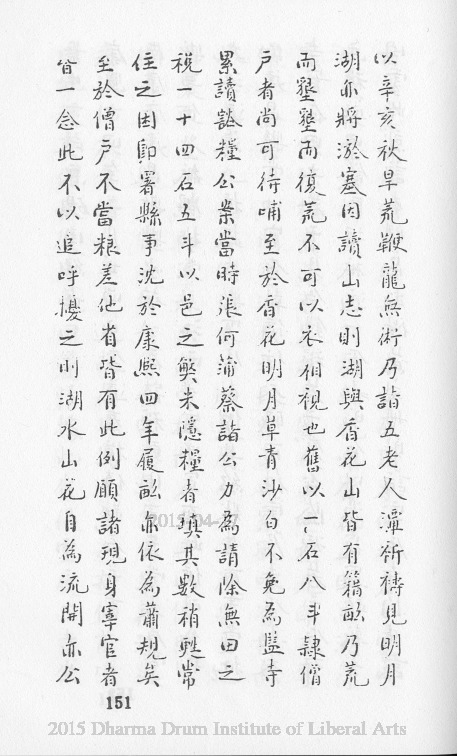 以辛亥秋旱荒鞭龍無術乃詣五老人潭祈禱見明月
湖亦將淤塞因讀山志則湖與香花山皆有籍畝乃荒
而墾墾而復荒不可以衣相視也舊以一石八斗隸僧
戶者尚可待哺至於香花明月草青沙白不免為監寺
累讀談糧公案當時張何蒲蔡諸公力為請除無田之
稅一十四石五斗以邑之獘米隱糧者填其數稍甦常
住之困即署縣事沈於康熙四年履畝亦依為蕭規矣
至於僧戶不當粮差他省皆有此例願諸現身宰官者
皆一念此不以追呼擾之則湖水山花自為流開亦公
151
2015 Dharma Drum Institute of Liberal Arts